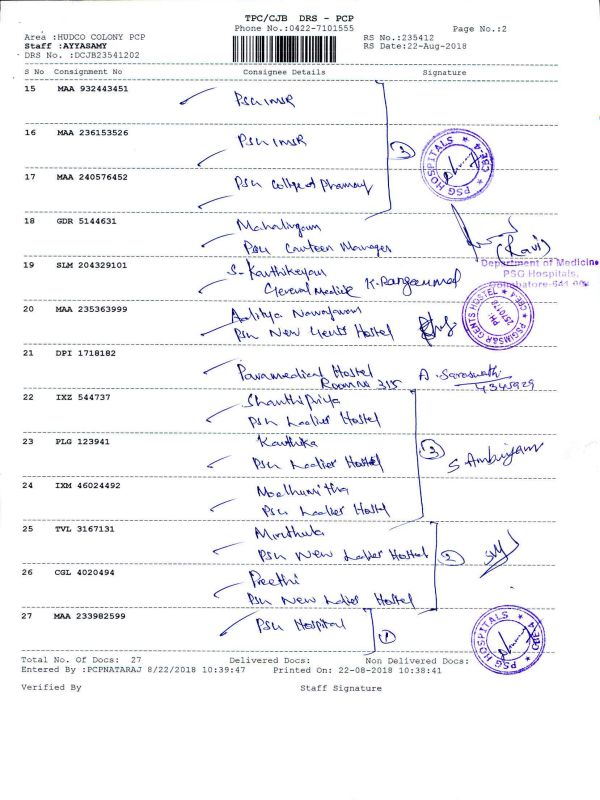 TPC/CJB DRS - PCP
Phone No.:0422-7101555
Page No.:2
Area :HUDCO COLONY PCP
RS No.:235412
Staff :AYYASAMY
RS Date:22-Aug-2018
DRS No. :DCJB23541202
S No Consignment No Consignee Details Signature
15 MAA 932443451
PSG IMSR
16 MAA 236153526
PSG IMSR
3
PSG HOSPITALS ★ CBE-4 ★
17 MAA 240576452
PSG College of Pharmacy
18 GDR 5144631
Mahalingam
PSG Canteen Manager
(Ravi)
19 SLM 204329101
S. Karthikeyan
General Medicine K. Rangammal
Department of Medicine
PSG Hospitals,
Coimbatore-641 004
20 MAA 235363999
Aaditya
PSG New Gents Hostel
PSGIMS&R GENTS HOSTEL ★ CBE4 ★
PH: 2570170
21 DPI 1718182
Paramedical Hostel
Room No 315
A. Saraswathi
4345929
22 IXZ 544737
Shanthipriya
PSG Ladies Hostel
23 PLG 123941
Karthika
PSG Ladies Hostel
3
24 IXM 46024492
Madhumitha
PSG Ladies Hostel
25 TVL 3167131
Mruthula
PSG New Ladies Hostel
2
26 CGL 4020494
Preethi
PSG New Ladies Hostel
27 MAA 233982599
PSG Hospital
1
PSG HOSPITALS ★ CBE-4 ★
Total No. Of Docs: 27 Delivered Docs: Non Delivered Docs:
Entered By :PCPNATARAJ 8/22/2018 10:39:47 Printed On: 22-08-2018 10:38:41
Verified By Staff Signature